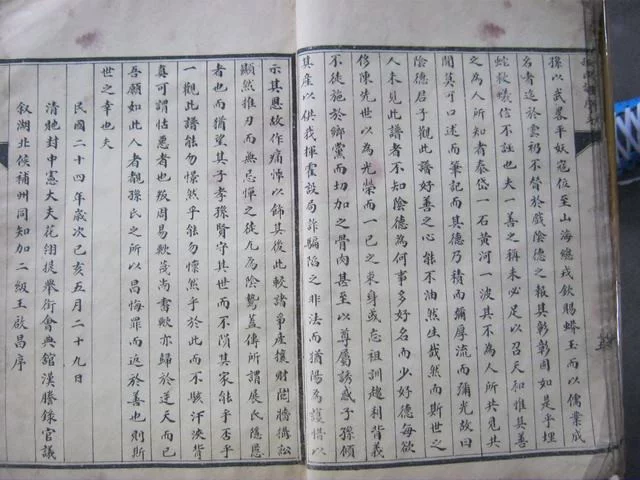 孫以武畧平妖寇位至山海總戎飲賜蟒玉而以儒業成
名者迄於雲礽不替於戲陰德之報其彰彰固如是乎埋
蛇救蟻信不誣也夫一善之稱未必足以召天和惟其善
之為人所知者泰岱一石黃河一波其不為人所共見共
聞莫可口述而筆記而其德乃積而彌厚流而彌光故曰
陰德君子觀此譜好善之心能不油然生哉然而斯世之
人未見此譜者不知陰德為何事多好名而少好德每欲
修陳先世以為光榮而一己之來身或忘祖訓趨利背義
不徒施於鄉黨而切加之骨肉甚至以尊屬誘感子孫傾
其產以供我揮霍設局詐騙陷之非法而猶陽為護惜以
示其恩故作痛悼以飾其後此較諸爭產攘財鬩牆搆訟
顯然推刃而無忌憚之徒尤為陰鷙蓋傳所謂展氏隱慝
者也而猶望其子孝孫賢守其世而不隕其家能乎否乎
一觀此譜能勿惕然乎能勿愫然乎於此而不駭汗浹背
真可謂怙惡者也孜周易歟茂尚書歟亦歸於逆天而已
吾願如此人者覩孫氏之所以昌悔罪而返於善也則斯
世之幸也夫
民國二十四年歲次乙亥五月二十九日
清貤封中憲大夫花翎提舉銜會典館漢謄錄官議
敘湖北候補州同知加二級王啟昌序